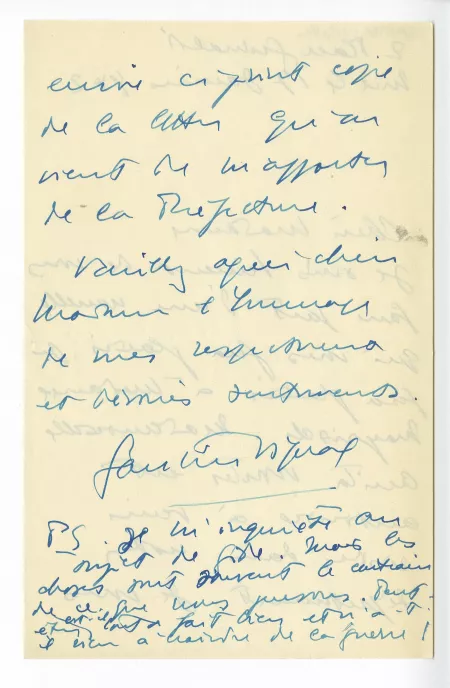 ci joint copie
de la lettre qu'on
vient de m'apporter
de la Préfecture.
Veuillez agréer chère
Madame l'hommage
de mes respectueux
et dévoués sentiments.
P.S. Je m'inquiète au
sujet de Gide. Mais les
choses sont souvent le contraire
de ce que nous pensons. Peut-
être est-il tout à fait bien et n'a-t-
il rien à craindre de la guerre !